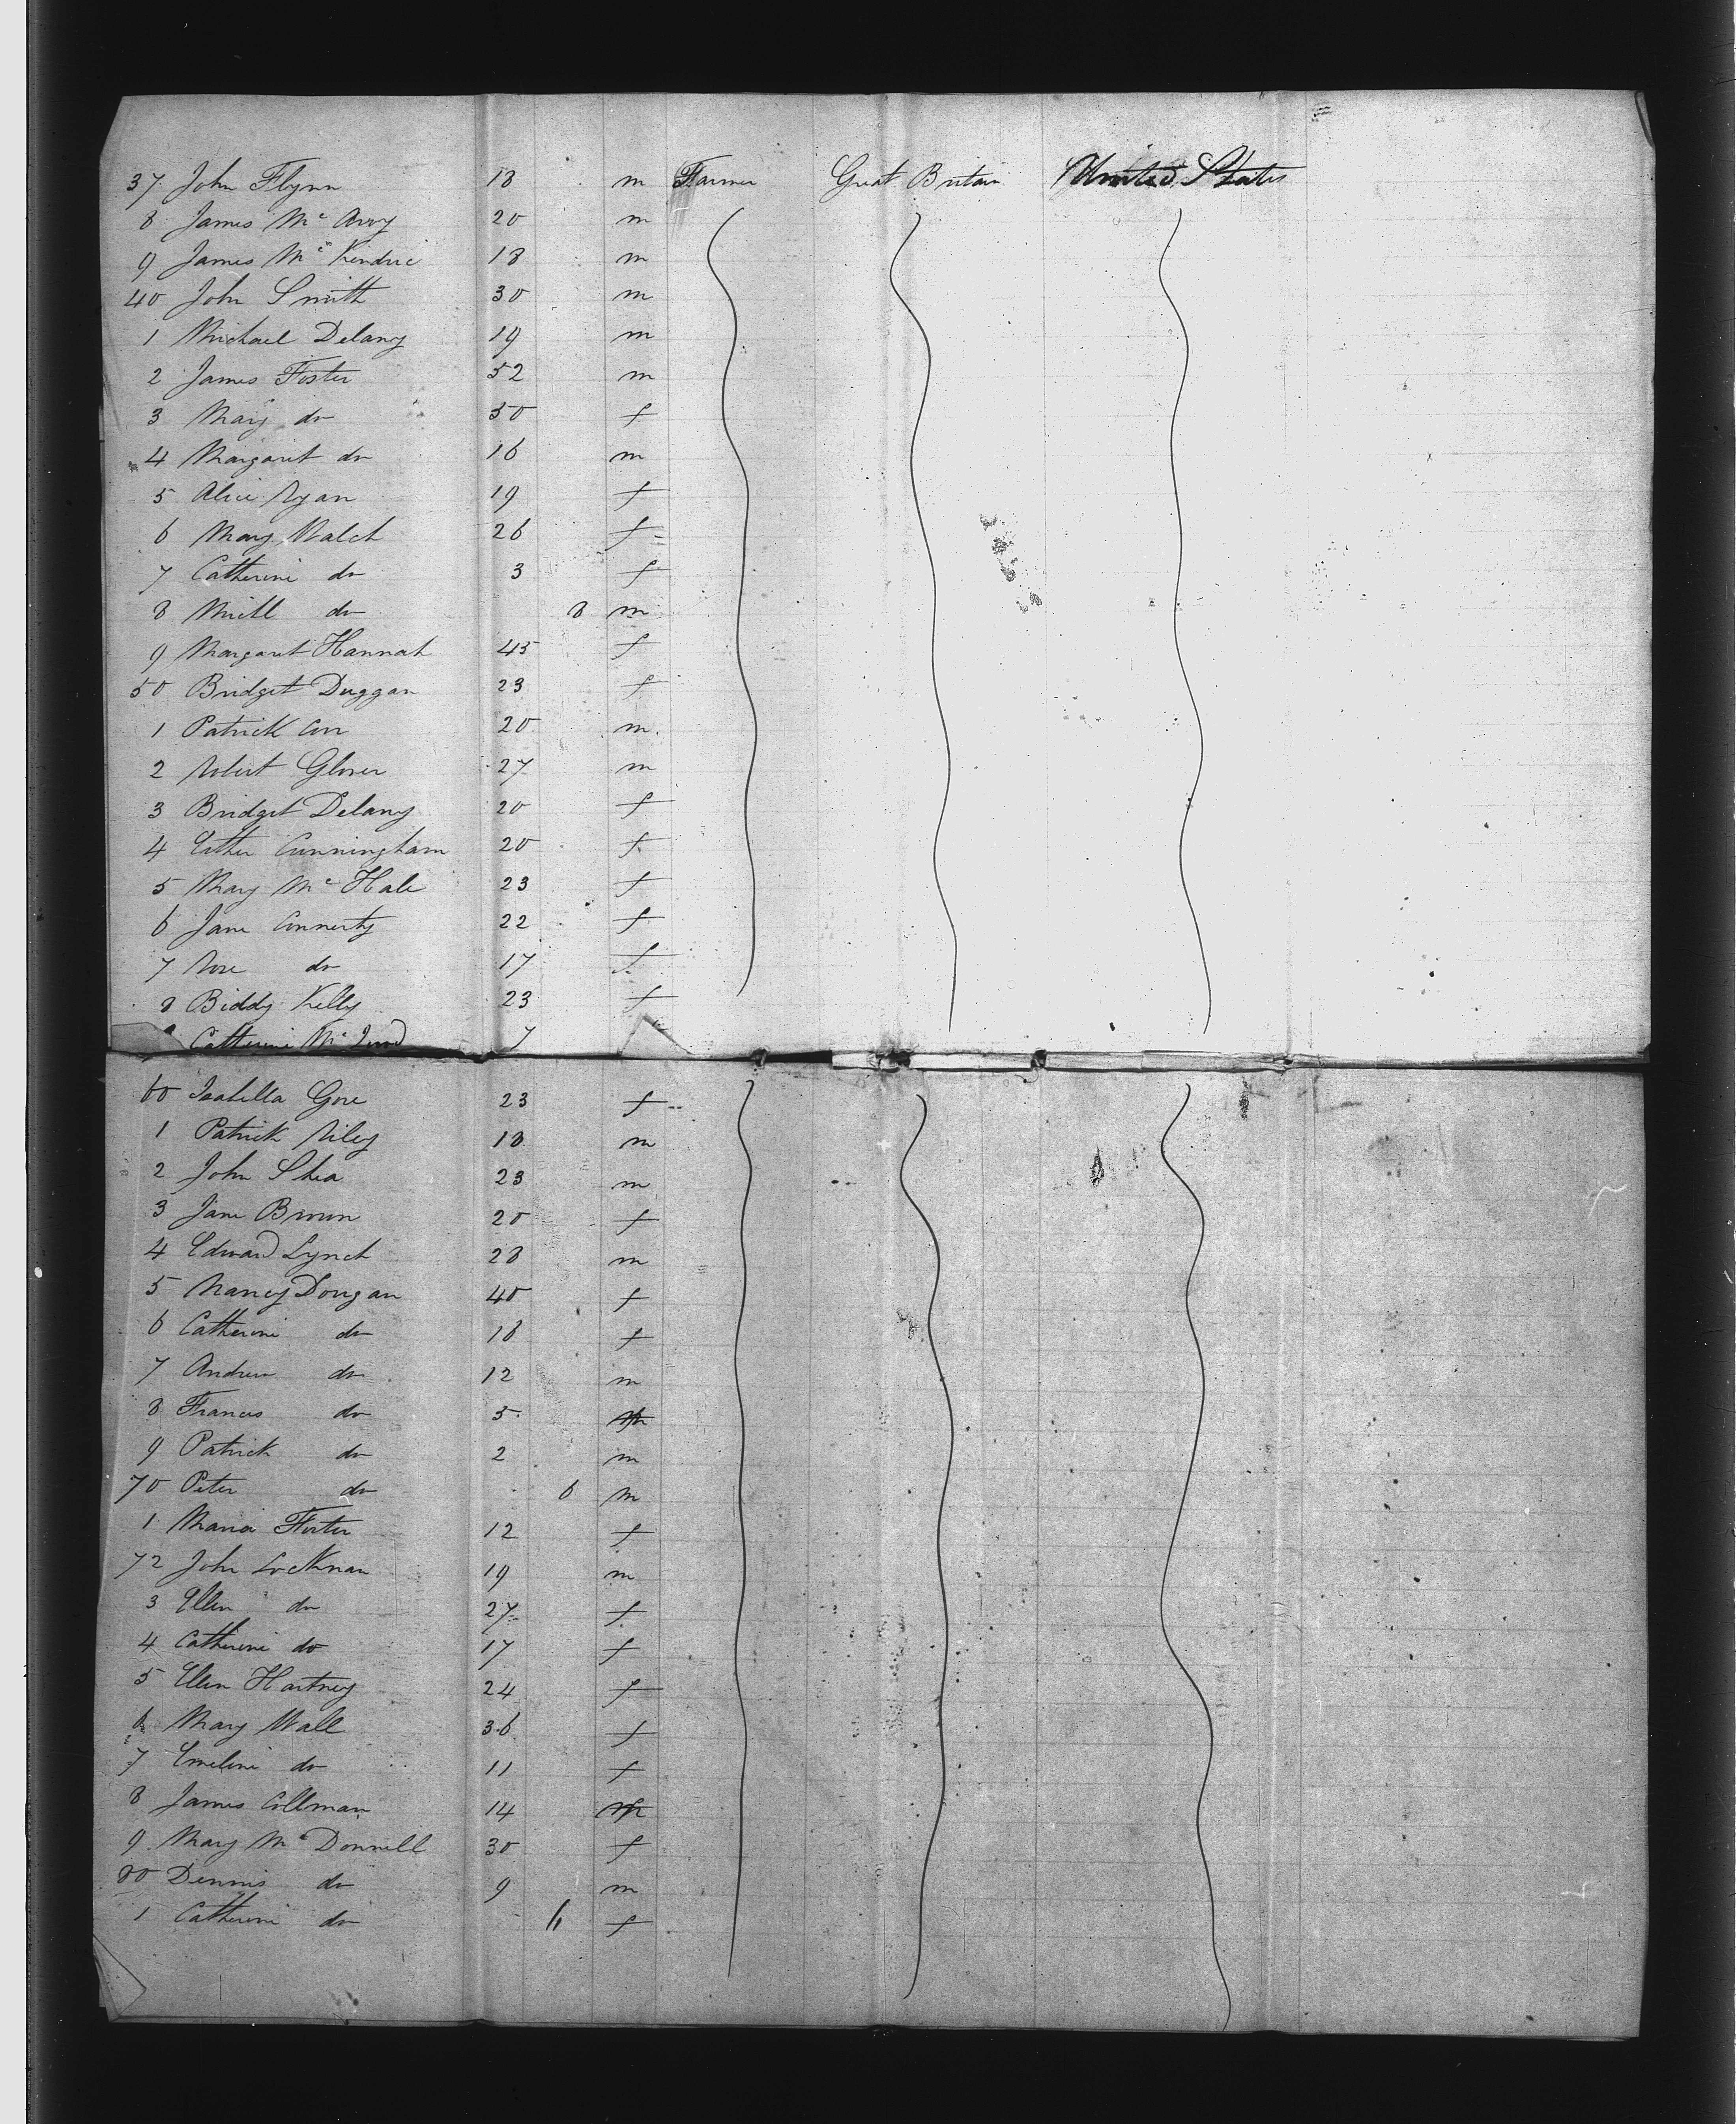 37 John Flynn 18 m Farmer Great Britain United States
8 James Mc Avoy 20 m
9 James Mc Kendric 18 m
40 John Smith 30 m
1 Michael Delany 19 m
2 James Foster 52 m
3 Mary do 50 f
4 Margaret do 16 m
5 Alice Ryan 19 f
6 Mary Walch 26 f
7 Catherine do 3 f
8 Michl do 8 m
9 Margaret Hannah 45 f
50 Bridget Duggan 23 f
1 Patrick 20 m
2 Robert Glover 27 m
3 Bridget Delany 20 f
4 Esther Cunningham 20 f
5 Mary Mc Hale 23 f
6 Jane Connerty 22 f
7 Rose do 17 f
8 Biddy Kelly 23 f
Catherine Mc 7
60 Isabella Gore 23 f
1 Patrick Riley 18 m
2 John Shea 23 m
3 Jane Brown 20 f
4 Edward Lynch 28 m
5 Nancy Dougan 40 f
6 Catherine do 18 f
7 Andrew do 12 m
8 Francis do 5
9 Patrick do 2 m
70 Peter do 6 m
1 Maria Foster 12 f
72 John Locknan 19 m
3 Ellen do 27 f
4 Catherine do 17 f
5 Ellen Hartney 24 f
6 Mary Wall 36 f
7 Emeline do 11 f
8 James Collman 14
9 Mary Mc Donnell 30 f
80 Dennis do 9 m
1 Catherine do f